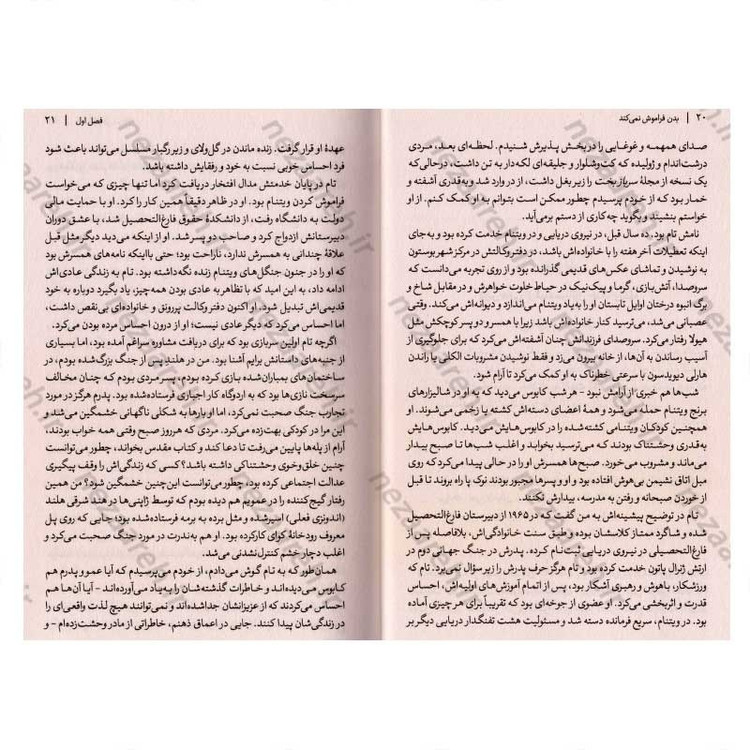 ۲۰ | بدن فراموش نمی‌کند
صدای همهمه و غوغایی را در بخش پذیرش شنیدم. لحظه‌ای بعد، مردی
درشت‌اندام و ژولیده که کت‌وشلوار و جلیقه‌ای لکه‌دار به تن داشت، درحالی‌که
یک نسخه از مجلهٔ سرباز بخت را زیر بغل داشت، از در وارد شد و به‌قدری آشفته و
خمار بود که از خودم پرسیدم چطور ممکن است بتوانم به او کمک کنم. از او
خواستم بنشیند و بگوید چه کاری از دستم برمی‌آید.
نامش تام بود. ده سال قبل، در نیروی دریایی و در ویتنام خدمت کرده بود و به‌جای
اینکه تعطیلات آخر هفته را با خانواده‌اش باشد، در دفتر وکالتش در مرکز شهر بوستون
به نوشیدن و تماشای عکس‌های قدیمی گذرانده بود و از روی تجربه می‌دانست که
سروصدا، آتش‌بازی، گرما و پیک‌نیک در حیاط خلوت خواهرش و در مقابل شاخ و
برگ انبوه درختان اوایل تابستان او را به یاد ویتنام می‌اندازد و دیوانه‌اش می‌کند. وقتی
عصبانی می‌شد، می‌ترسید کنار خانواده‌اش باشد زیرا با همسر و دو پسر کوچکش مثل
هیولا رفتار می‌کرد. سروصدای فرزندانش چنان آشفته‌اش می‌کرد که برای جلوگیری از
آسیب رساندن به آن‌ها، از خانه بیرون می‌زد و فقط نوشیدن مشروبات الکلی یا راندن
هارلی دیویدسون با سرعتی خطرناک به او کمک می‌کرد تا آرام شود.
شب‌ها هم خبری از آرامش نبود - هر شب کابوس می‌دید که به او در شالیزارهای
برنج ویتنام حمله می‌شود و همهٔ اعضای دسته‌اش کشته یا زخمی می‌شوند. او
همچنین کودکان ویتنامی کشته‌شده را در کابوس‌هایش می‌دید. کابوس‌هایش
به‌قدری وحشتناک بودند که می‌ترسید بخوابد و اغلب شب‌ها تا صبح بیدار
می‌ماند و مشروب می‌خورد. صبح‌ها همسرش او را در حالی پیدا می‌کرد که روی
مبل اتاق نشیمن بی‌هوش افتاده بود و او و پسرها مجبور بودند نوک پا راه بروند تا قبل
از خوردن صبحانه و رفتن به مدرسه، بیدارش نکنند.
تام در توضیح پیشینه‌اش به من گفت که در ۱۹۶۵ از دبیرستان فارغ‌التحصیل
شده و شاگرد ممتاز کلاسشان بوده و طبق سنت خانوادگی‌اش، بلافاصله پس از
فارغ‌التحصیلی در نیروی دریایی ثبت‌نام کرده. پدرش در جنگ جهانی دوم در
ارتش ژنرال پاتون خدمت کرده بود و تام هرگز حرف پدرش را زیر پا نمی‌گذاشت. تام
ورزشکار، باهوش و رهبری آشکار بود، پس از اتمام آموزش‌های اولیه‌اش، احساس
قدرت و اثربخشی می‌کرد. او عضوی از جوخه‌ای بود که تقریباً برای هر چیزی آماده
بود. در ویتنام، سریع فرمانده دسته شد و مسئولیت هشت تفنگدار دریایی دیگر بر
فصل اول | ۲۱
عهدهٔ او قرار گرفت. زنده ماندن در گل‌ولای و زیر رگبار مسلسل می‌تواند باعث شود
فرد احساس خوبی نسبت به خود و رفقایش داشته باشد.
تام در پایان خدمتش مدال افتخار دریافت کرد اما تنها چیزی که می‌خواست
فراموش کردن ویتنام بود. او در ظاهر دقیقاً همین کار را کرد. او با حمایت مالی
دولت به دانشگاه رفت، از دانشکدهٔ حقوق فارغ‌التحصیل شد، با عشق دوران
دبیرستانش ازدواج کرد و صاحب دو پسر شد. او از اینکه می‌دید دیگر مثل قبل
علاقهٔ چندانی به همسرش ندارد، ناراحت بود؛ حتی بااینکه نامه‌های همسرش بود
که او را در جنون جنگل‌های ویتنام زنده نگه داشته بود. تام به زندگی عادی‌اش
ادامه داد، به این امید که با تظاهر به عادی بودن همه‌چیز، یاد بگیرد دوباره به خود
قدیمی‌اش تبدیل شود. او اکنون دفتر وکالت پررونق و خانواده‌ای بی‌نقص داشت،
اما احساس می‌کرد که دیگر عادی نیست؛ او از درون احساس مرده بودن می‌کرد.
اگرچه تام اولین سربازی بود که برای دریافت مشاوره سراغم آمده بود، اما بسیاری
از جنبه‌های داستانش برایم آشنا بود. من در هلند پس از جنگ بزرگ شده بودم، در
ساختمان‌های بمباران‌شده بازی کرده بودم، پسر مردی بودم که چنان مخالف
سرسخت نازی‌ها بود که به اردوگاه کار اجباری فرستاده شده بود. پدرم هرگز در مورد
تجارب جنگ صحبت نمی‌کرد، اما او بارها به شکلی ناگهانی خشمگین می‌شد و
این مرا در کودکی بهت‌زده می‌کرد. مردی که هر روز صبح وقتی همه خواب بودند،
آرام از پله‌ها پایین می‌رفت تا دعا کند و کتاب مقدس بخواند، چطور می‌توانست
چنین خلق‌وخوی وحشتناکی داشته باشد؟ کسی که زندگی‌اش را وقف پیگیری
عدالت اجتماعی کرده بود، چطور می‌توانست این‌چنین خشمگین شود؟ من همین
رفتار گیج‌کننده را در عمویم هم دیده بودم که توسط ژاپنی‌ها در هند شرقی هلند
(اندونزی فعلی) اسیر شده و مثل برده به برمه فرستاده شده بود؛ جایی که روی پل
معروف رودخانهٔ کوای کار کرده بود. او هم به‌ندرت در مورد جنگ صحبت می‌کرد و
اغلب دچار خشم کنترل‌نشدنی می‌شد.
همان‌طور که به تام گوش می‌دادم، از خودم می‌پرسیدم که آیا عمو و پدرم هم
کابوس می‌دیده‌اند و خاطرات گذشته‌شان را به یاد می‌آورده‌اند - آیا آن‌ها هم
احساس می‌کردند که از عزیزانشان جدا شده‌اند و نمی‌توانند هیچ لذت واقعی‌ای را
در زندگی‌شان پیدا کنند. جایی در اعماق ذهنم، خاطراتی از مادر وحشت‌زده‌ام - و